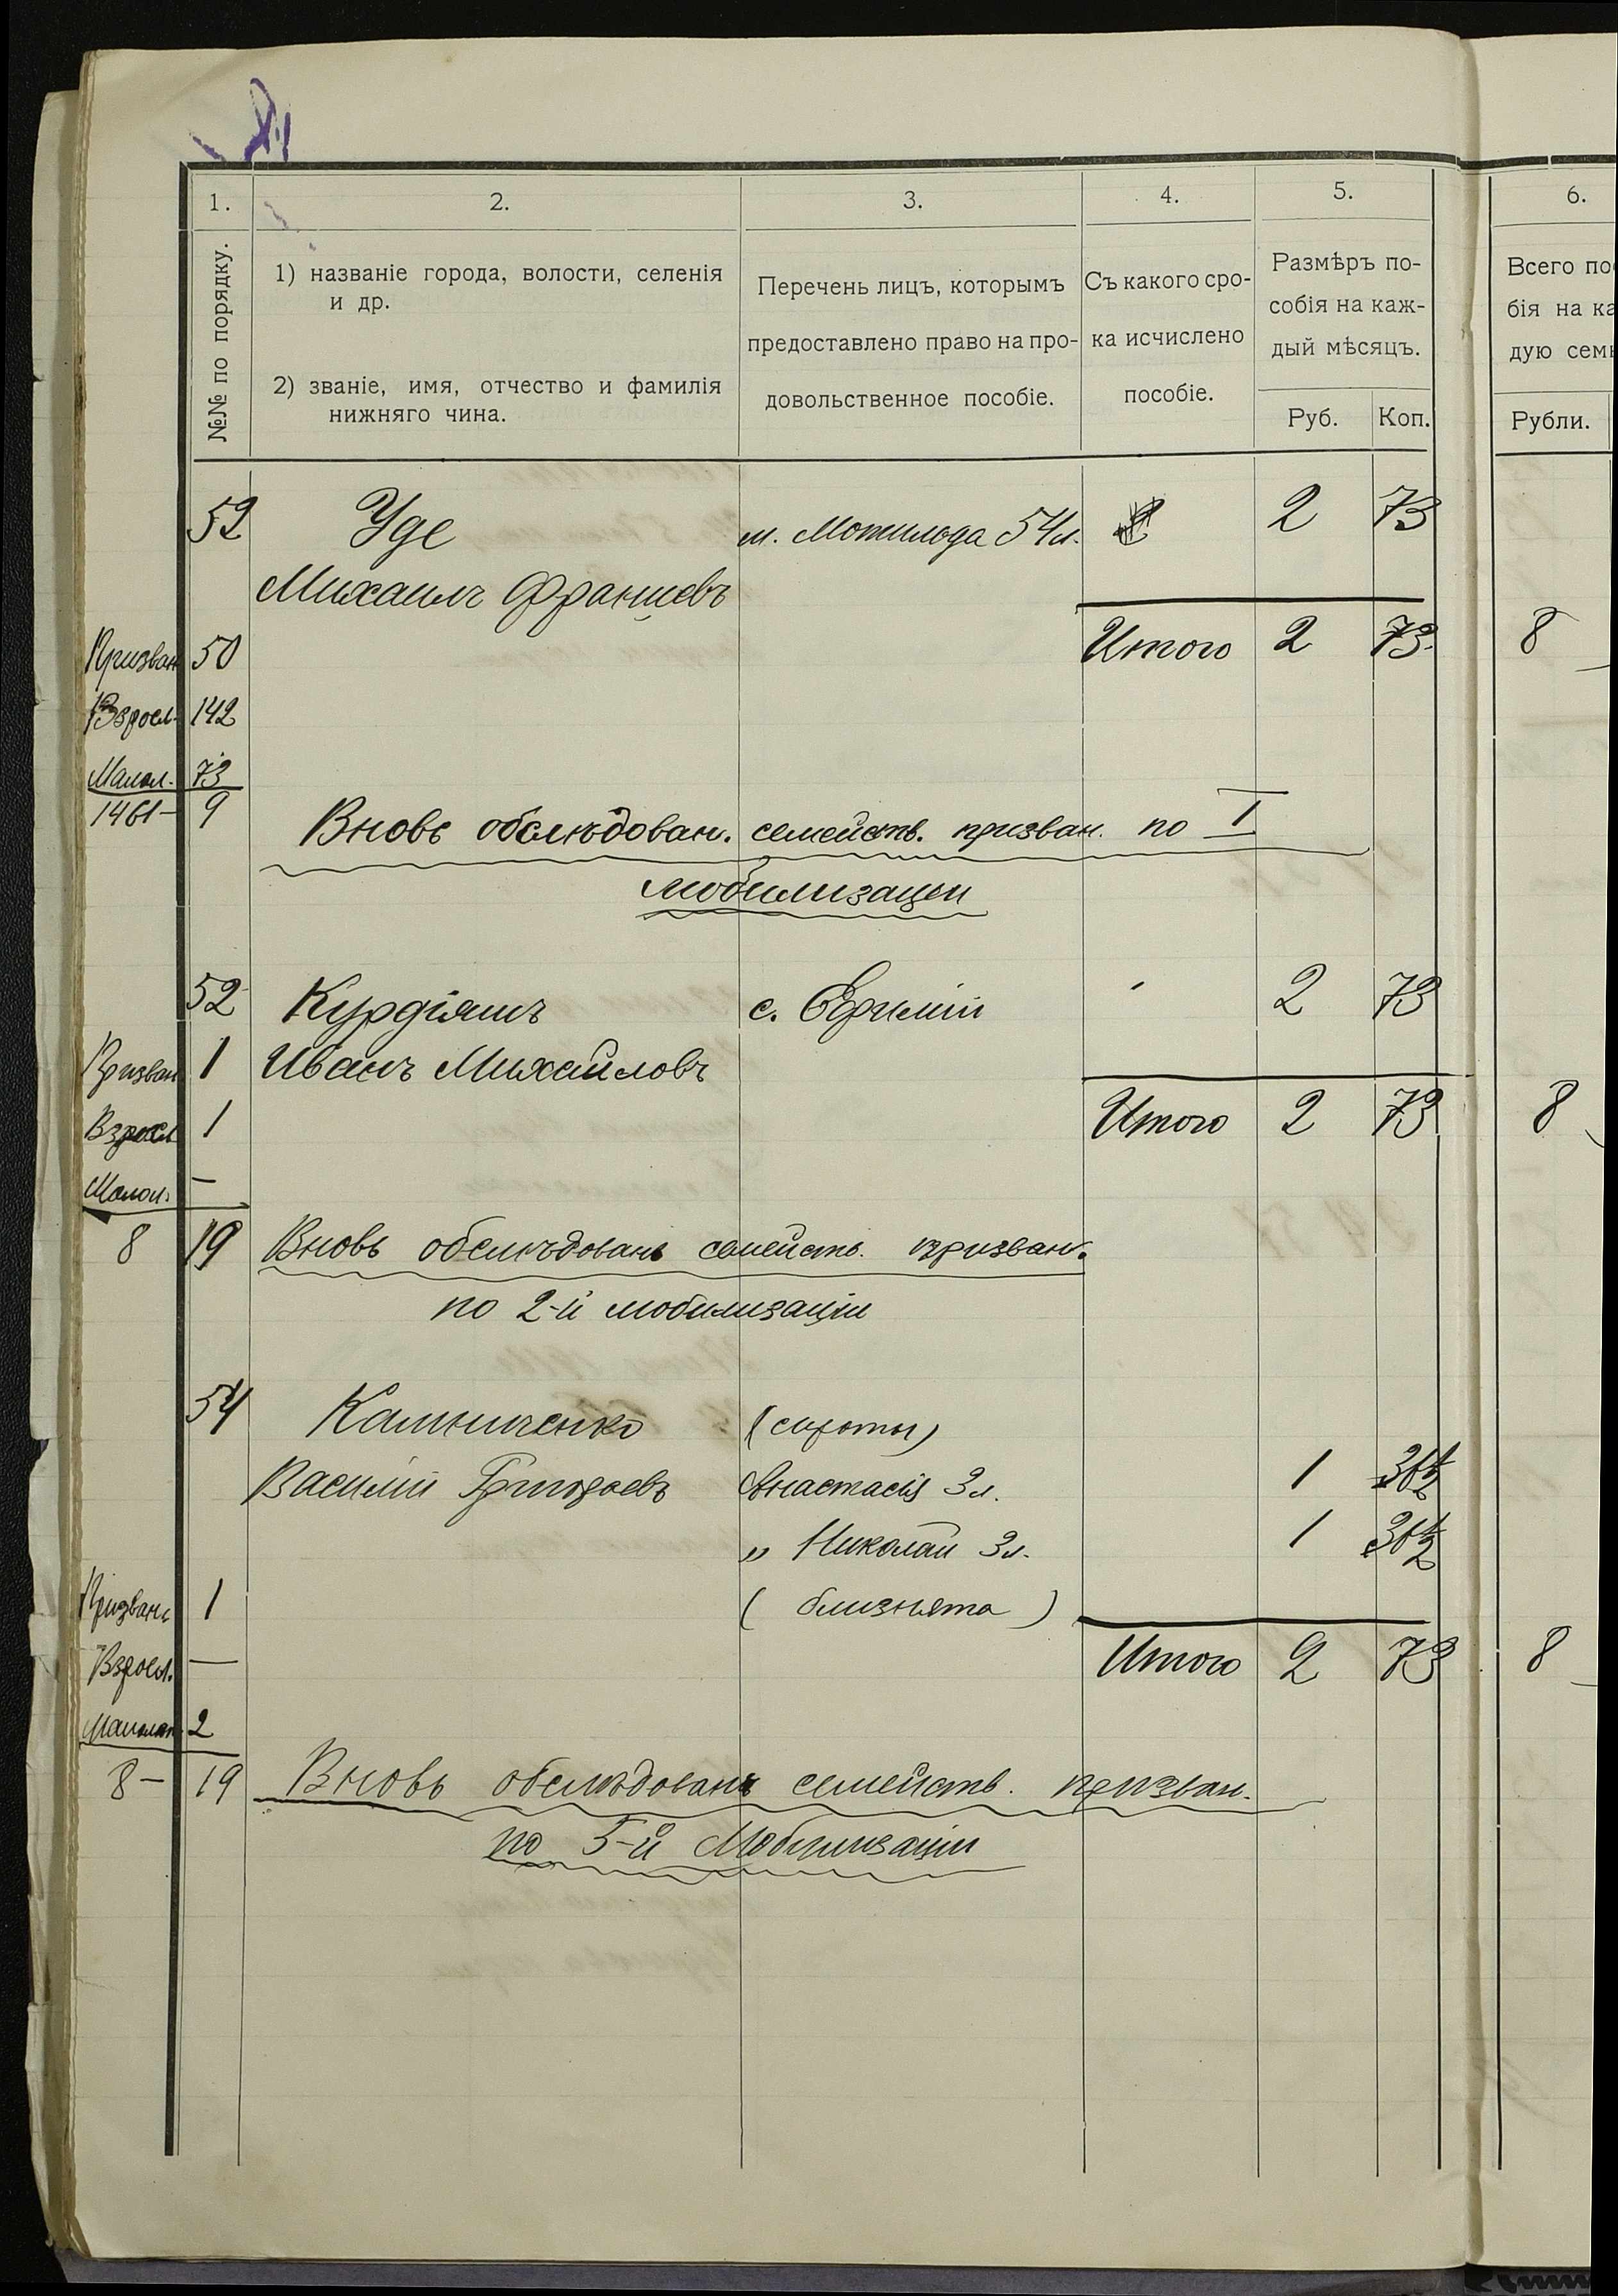 1. 2. 3. 4. 5. 6.
№№ по порядку.
1) названіе города, волости, селенія
и др.
2) званіе, имя, отчество и фамилія
нижняго чина.
Перечень лицъ, которымъ
предоставлено право на про-
довольственное пособіе.
Съ какого сро-
ка исчислено
пособіе.
Размѣръ по-
собія на каж-
дый мѣсяцъ.
Руб. Коп.
Всего по
бія на ка
дую сем
Рубли.
52 Уде м. Мотильда 54 л. 2 73
Михаилъ Францевъ
Призван 50 Итого 2 73 8
Взросл. 142
Малол. 73
1461- 9
Вновь обслѣдован. семейств. призван. по I
мобилизаціи
52 Курдіямъ с. Ефимій 2 73
Призван 1 Иванъ Михайловъ
Взросл 1 Итого 2 73 8
Малол. —
8 19 Вновь обслѣдовань семейств. призван.
по 2-й мобилизаціи
54 Калниченко (сироты)
Василій Григорьевъ Анастасія 3 л. 1 36½
„ Николай 3 л. 1 36½
Призвань 1 (близнята)
Взросл. — Итого 2 73 8
Малолѣт 2
8- 19 Вновь обслѣдовань семейств. призван.
по 5-й Мобилизаціи